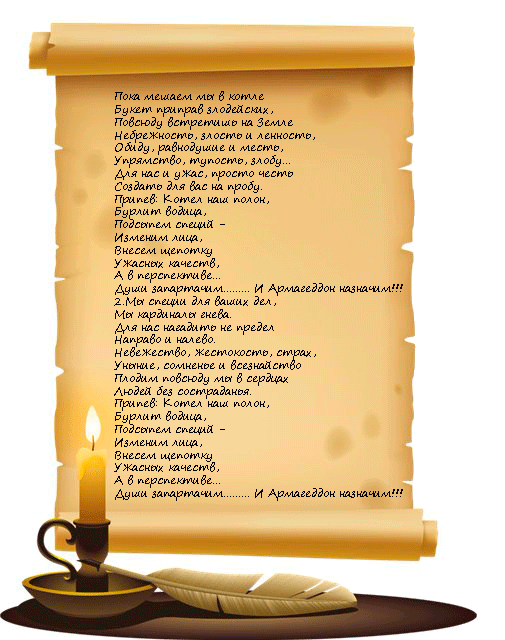 Пока мешаем мы в котле
Букет приправ злодейских,
Повсюду встретишь на Земле
Небрежность, злость и ленность,
Обиду, равнодушие и месть,
Упрямство, тупость, злобу...
Для нас и ужас, просто честь
Создать для вас на пробу.
Припев: Котел наш полон,
Бурлит водица,
Подсыпем специй -
Изменим лица,
Внесем щепотку
Ужасных качеств,
А в перспективе...
Души запартачим......... И Армагеддон назначим!!!
2.Мы специи для ваших дел,
Мы кардиналы гнева.
Для нас нагадить не предел
Направо и налево.
Невежество, жестокость, страх,
Уныние, сомненье и всезнайство
Плодим повсюду мы в сердцах
Людей без состраданья.
Припев: Котел наш полон,
Бурлит водица,
Подсыпем специй -
Изменим лица,
Внесем щепотку
Ужасных качеств,
А в перспективе...
Души запартачим......... И Армагеддон назначим!!!